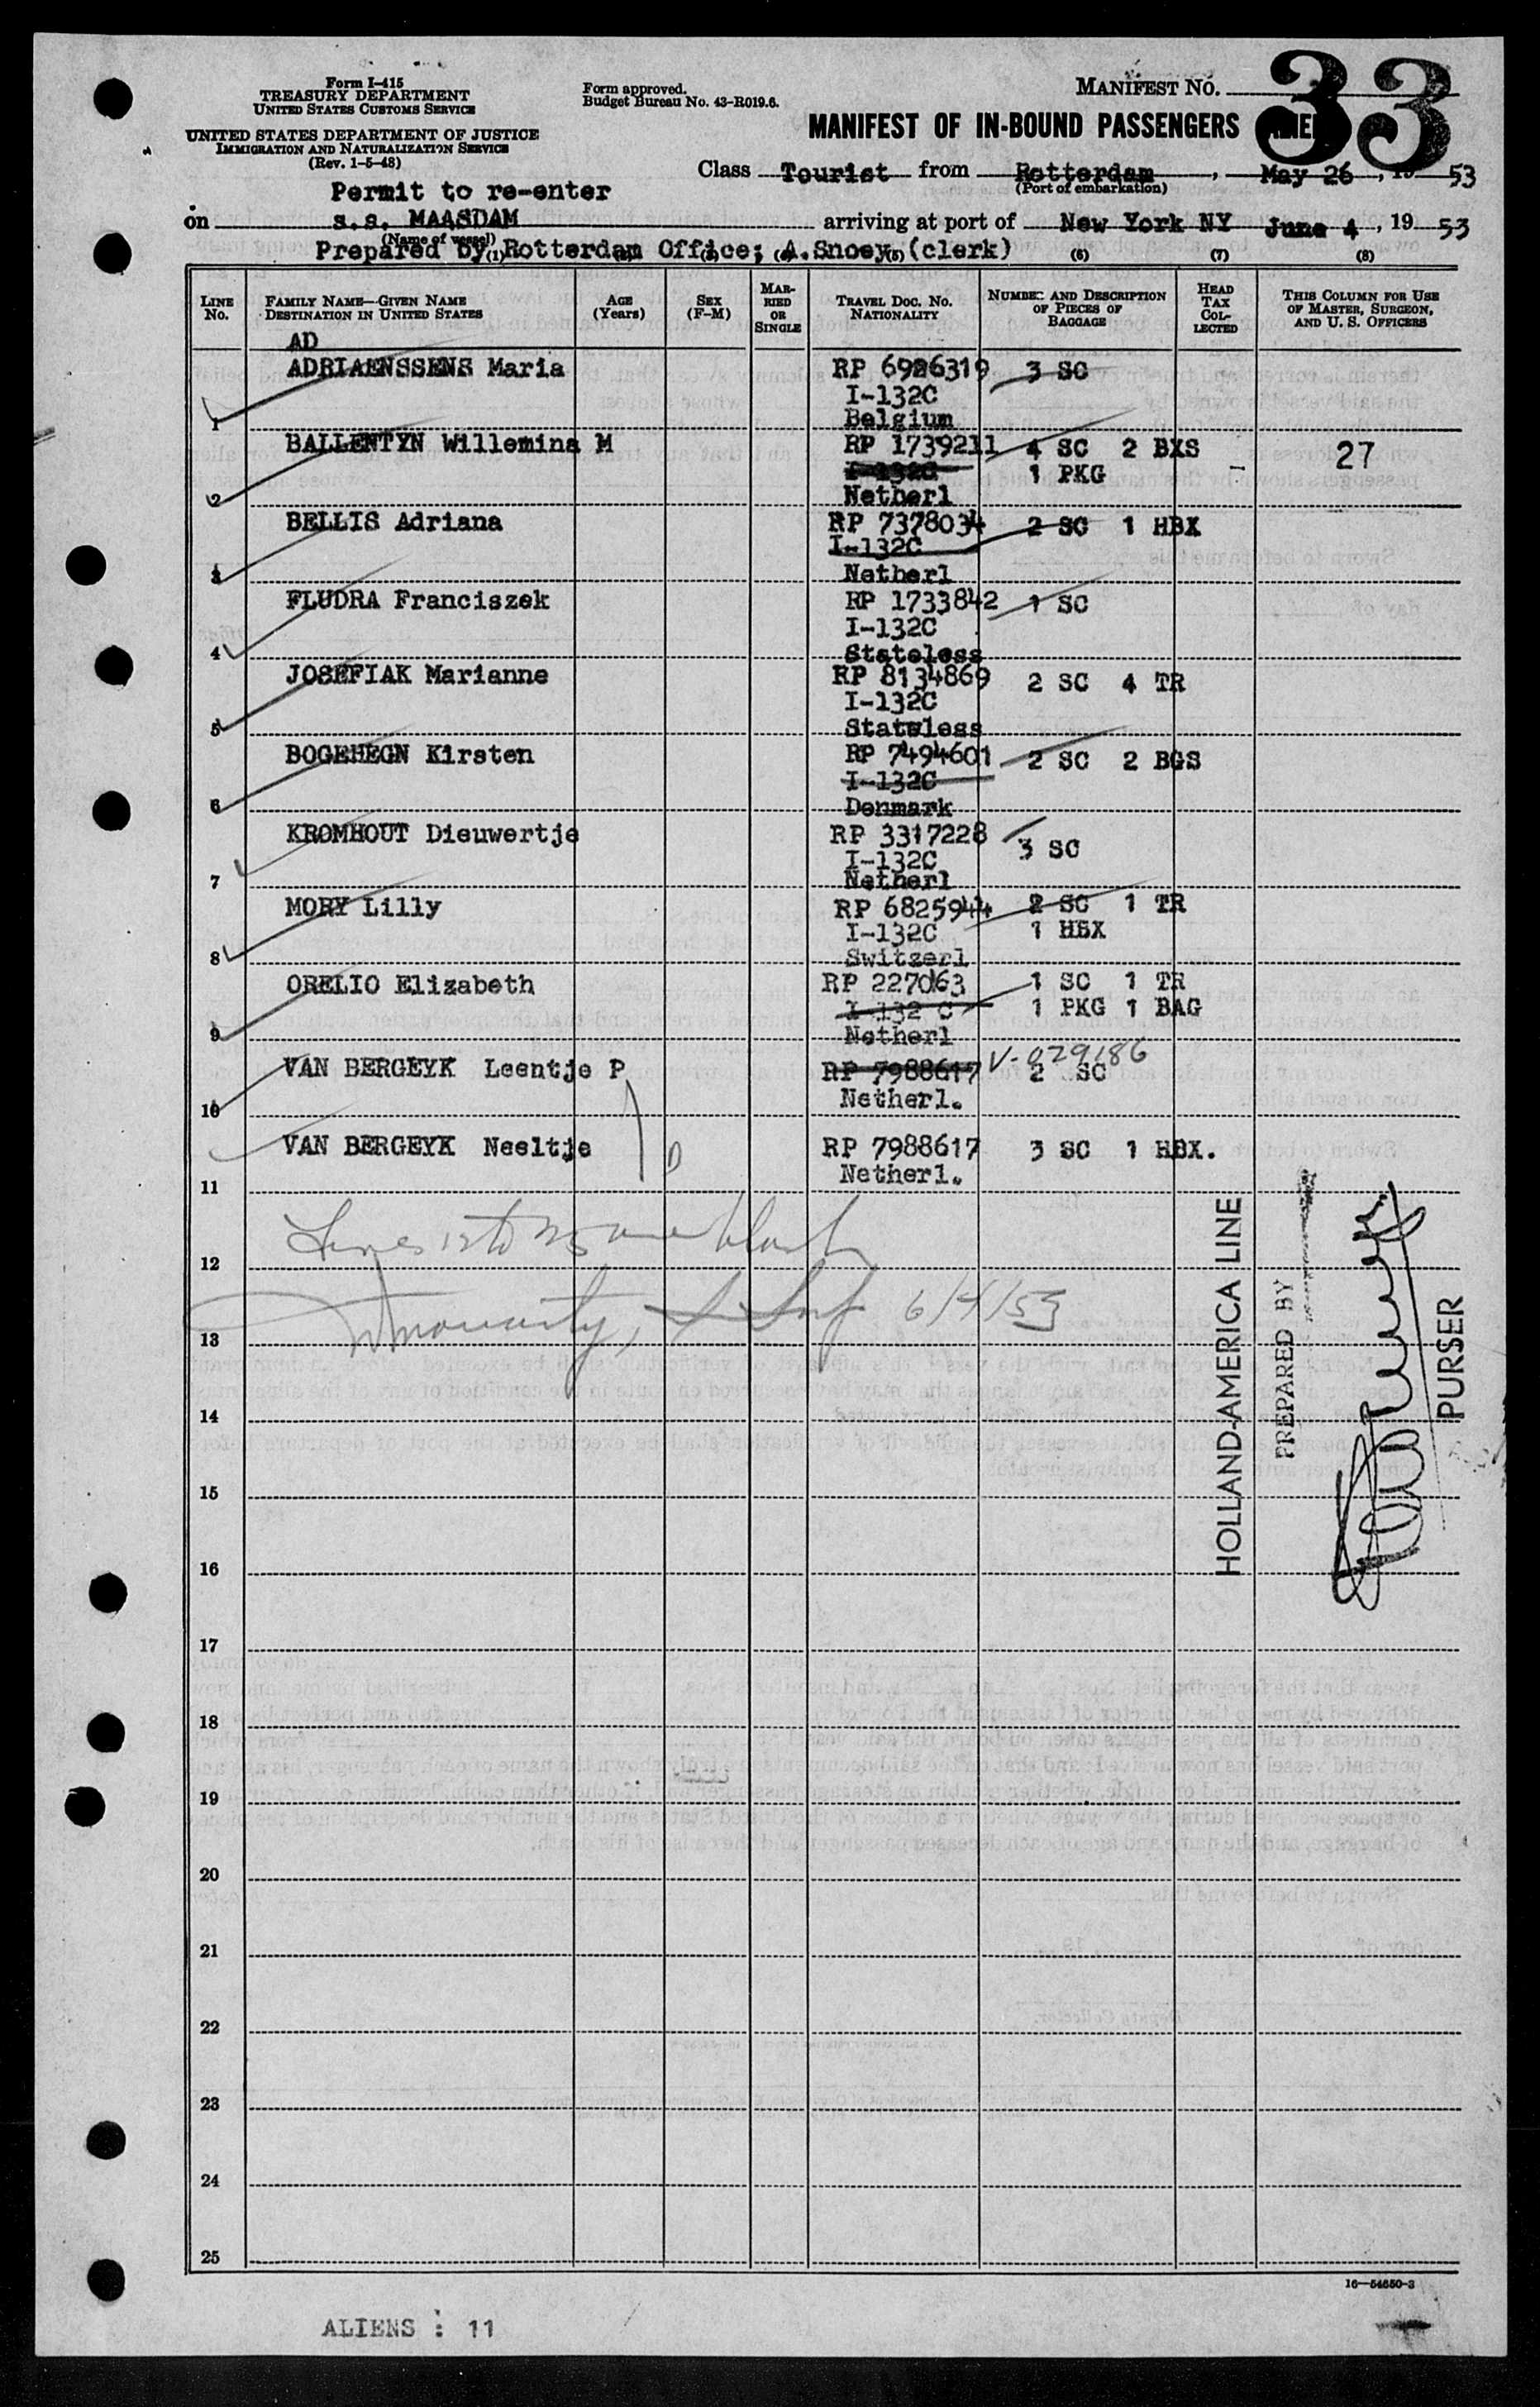 Form I-415
TREASURY DEPARTMENT
UNITED STATES CUSTOMS SERVICE
UNITED STATES DEPARTMENT OF JUSTICE
IMMIGRATION AND NATURALIZATION SERVICE
(Rev. 1-5-48)
Form approved.
Budget Bureau No. 43-R019.6.
MANIFEST NO.
33
MANIFEST OF IN-BOUND PASSENGERS
Class Tourist from Rotterdam, May 26, 19 53
(Port of embarkation)
Permit to re-enter
on s.s. MAASDAM arriving at port of New York NY June 4, 19 53
(Name of vessel)
Prepared by Rotterdam Office; A.Snoey (clerk)
(1) (2) (3) (4) (5) (6) (7) (8)
LINE No. FAMILY NAME—GIVEN NAME DESTINATION IN UNITED STATES AGE (Years) SEX (F-M) MARRIED OR SINGLE TRAVEL DOC. NO. NATIONALITY NUMBER AND DESCRIPTION OF PIECES OF BAGGAGE HEAD TAX COLLECTED THIS COLUMN FOR USE OF MASTER, SURGEON, AND U. S. OFFICERS
AD
ADRIAENSSENS Maria RP 6926319 3 SC
I-132C
1 Belgium
BALLENTYN Willemina M RP 1739211 4 SC 2 BXS 27
I-132C 1 PKG
2 Netherl
BELLIS Adriana RP 7378034 2 SC 1 HBX
I-132C
3 Netherl
FLUDRA Franciszek RP 1733842 1 SC
I-132C
4 Stateless
JOSEFIAK Marianne RP 8134869 2 SC 4 TR
I-132C
5 Stateless
BOGEHEGN Kirsten RP 7494601 2 SC 2 BGS
I-132C
6 Denmark
KROMHOUT Dieuwertje RP 3317228 3 SC
I-132C
7 Netherl
MORY Lilly RP 6825944 2 SC 1 TR
I-132C 1 HBX
8 Switzerl
ORELIO Elizabeth RP 227063 1 SC 1 TR
I-132 C 1 PKG 1 BAG
9 Netherl
V-029186
VAN BERGEYK Leentje P RP 7988617 2 SC
10 Netherl.
VAN BERGEYK Neeltje RP 7988617 3 SC 1 HBX.
11 Netherl.
Lines 12 to 25 are blank
12
6/4/53
13
14
15
16
17
18
19
20
21
22
23
24
25
HOLLAND-AMERICA LINE
PREPARED BY
PURSER
16—54650-3
ALIENS : 11